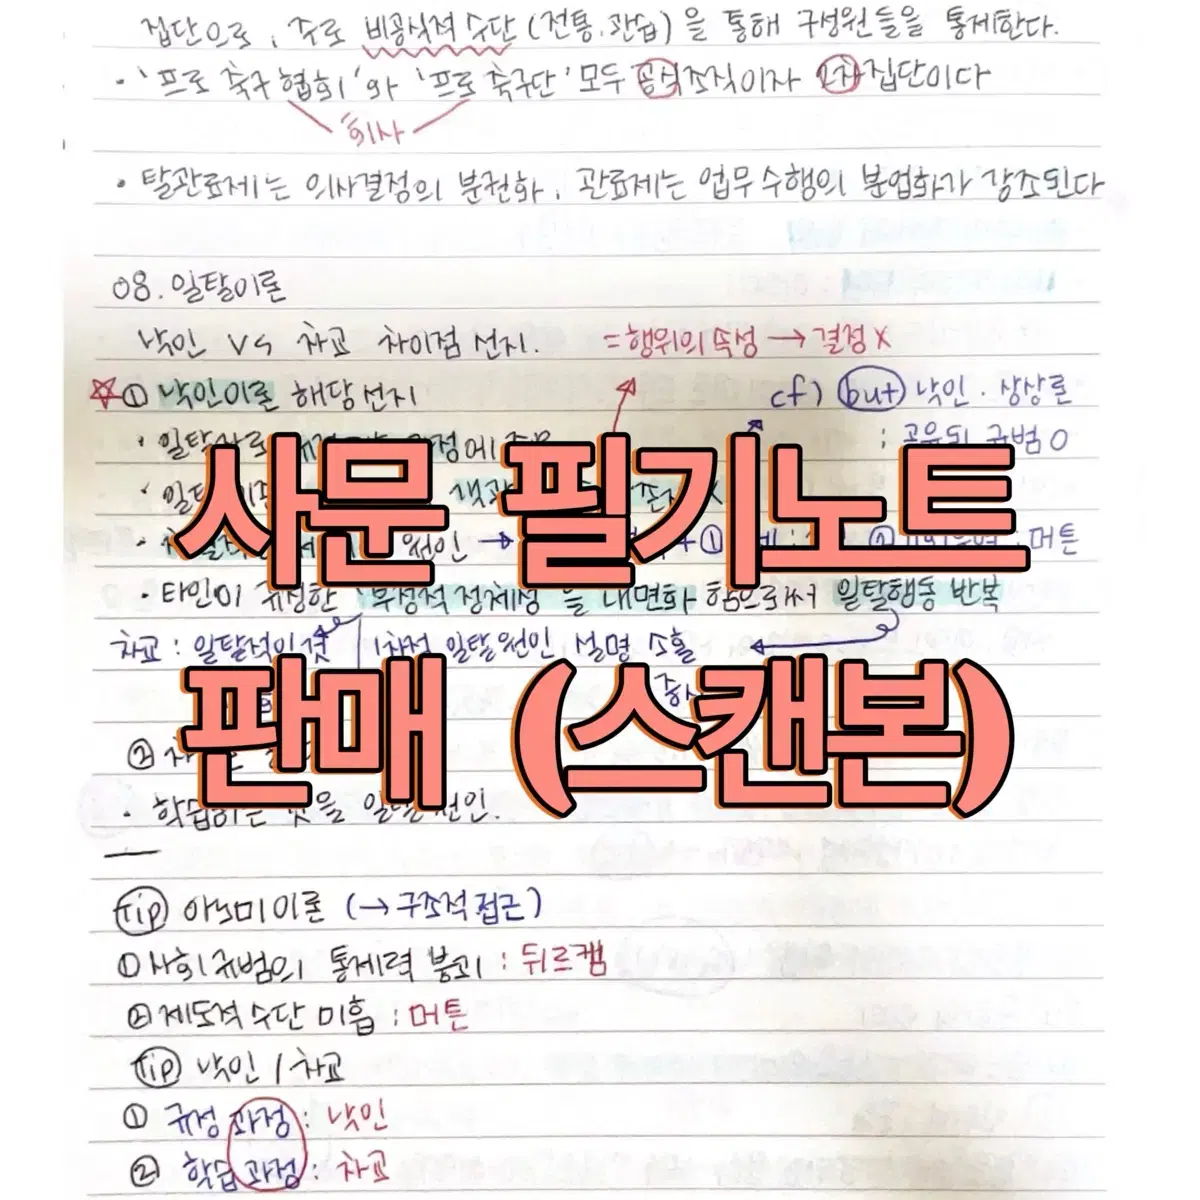 집단으로, 주로 비공식적 수단 (전통.관습)을 통해 구성원들을 통제한다.
· '프로 축구 협회'와 '프로 축구단' 모두 공식조직이자 2차 집단이다
회사
· 탈관료제는 의사결정의 분권화, 관료제는 업무수행의 분업화가 강조된다
08. 일탈이론
낙인 vs 차교 차이점 선지.
=행위의 속성 → 결정 X
☆① 낙인이론 해당선지
cf) but 낙인 · 상상론
: 공유된 규범 O
· 일탈
사문 필기노트
· 일탈
원인 →
: 머튼
· 타인이 규정한 부정적 정체성을 내면화 함으로써 일탈행동 반복
차교 : 일탈적인 것
1차적 일탈 원인 설명 소홀
판매 (스캔본)
②
· 학습하는 것을 일탈 원인.
tip 아노미이론 (→구조적 접근)
① 사회규범의 통제력 붕괴 : 뒤르켐
② 제도적 수단 미흡 : 머튼
tip 낙인 / 차교
① 규정 과정 : 낙인
② 학습 과정 : 차교